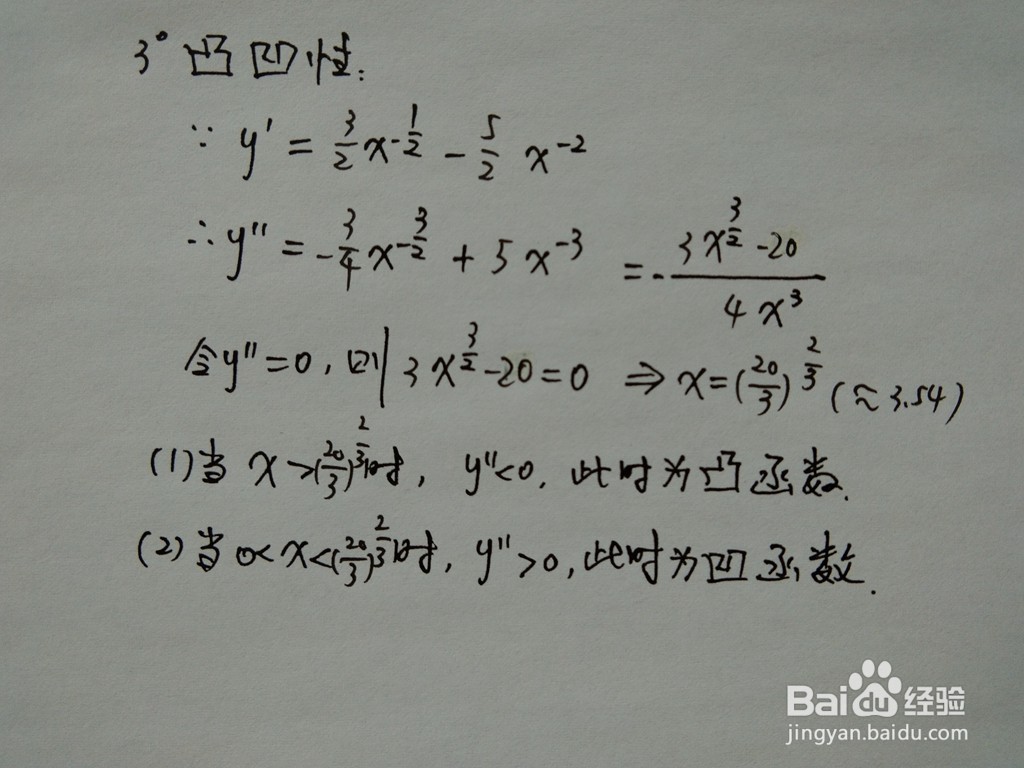 3° 凸凹性:
∵ y' = 3/2 x^(-1/2) - 5/2 x^(-2)
∴ y'' = -3/4 x^(-3/2) + 5x^(-3) = -(3x^(3/2) - 20)/(4x^3)
令y''=0, 则 3x^(3/2) - 20 = 0 ⇒ x = (20/3)^(2/3) (≈3.54)
(1) 当 x > (20/3)^(2/3)时, y''<0, 此时为凸函数.
(2) 当 0<x<(20/3)^(2/3)时, y''>0, 此时为凹函数.
Baidu经验
jingyan.baidu.com